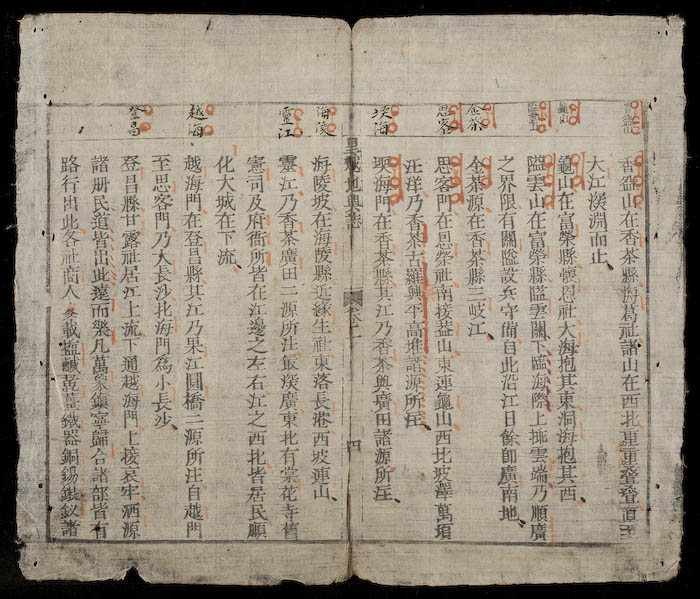 香盆山在香茶縣海葛社諸山在西北重重叠叠直至
大江深淵而止
龜山在富榮縣懷恩社大海抱其東洞海抱其西
隘雲山在富榮縣隘雲關下臨海際上揷雲端乃順廣
之界限有關隘設兵守備自此沿江日餘即廣南地
金茶
金茶源在香茶縣三岐江
思客
思容門在思榮社南接盆山東連龜山西北坡舉萬頃
汪洋乃香茶古羅興平高堆諸源所注
堧海
堧海門在香茶縣其江乃香茶與廣田諸源所注
皇越地輿誌
卷一
四
海陵
海陵坡在海陵縣近緣生社東落長港西坡連山
靈江
靈江乃香茶廣田二源所注最深廣東北有棠花寺舊
憲司及府衙所皆在江邊之左右江之西北皆居民順
化大城在下流
越海
越海門在登昌縣其江乃果江圓橋二源所注自越門
至思客門乃大長沙北海門為小長沙
登昌
登昌縣甘露社居江上流下通越海門上接哀牢酒源
諸册民道皆出此遠而樂凡萬象鎮寧歸合諸部皆有
路行出此各社商人多載塩鹹黃蓋鐵器銅錫銀釵諸